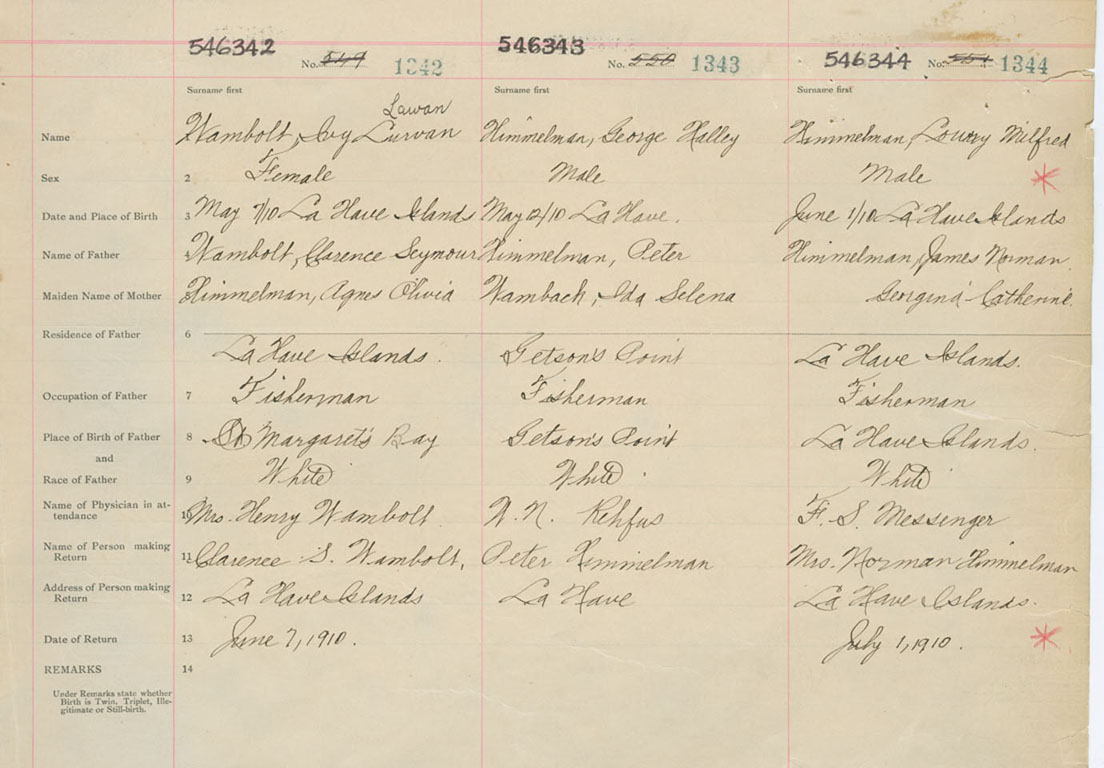 546342 546343 546344
No. 549 1342 No. 550 1343 No. 551 1344
Surname first Surname first Surname first
Lawan
Name Wambolt, Ivy Curvan Himmelman, George Halley Himmelman, Loury Milfred
Sex 2 Female Male Male
Date and Place of Birth 3 May 7/10 La Have Islands May 12/10 La Have. June 1/10 La Have Islands
Name of Father Wambolt, Clarence Seymour Himmelman, Peter Himmelman, James Norman.
Maiden Name of Mother Himmelman, Agnes Olivia Wambach, Ida Selena Georgina Catherine.
Residence of Father 6
La Have Islands. Getson's Point La Have Islands.
Occupation of Father 7 Fisherman Fisherman Fisherman
Place of Birth of Father 8 St Margaret's Bay Getson's Point La Have Islands.
and
Race of Father 9 White White White
Name of Physician in at-
tendance 10 Mrs. Henry Wambolt. W. N. Rehfus F. S. Messenger
Name of Person making
Return 11 Clarence S. Wambolt, Peter Himmelman Mrs. Norman Himmelman
Address of Person making
Return 12 La Have Islands La Have La Have Islands.
Date of Return 13 June 7, 1910. July 1, 1910.
REMARKS 14
Under Remarks state whether
Birth is Twin, Triplet, Ille-
gitimate or Still-birth.